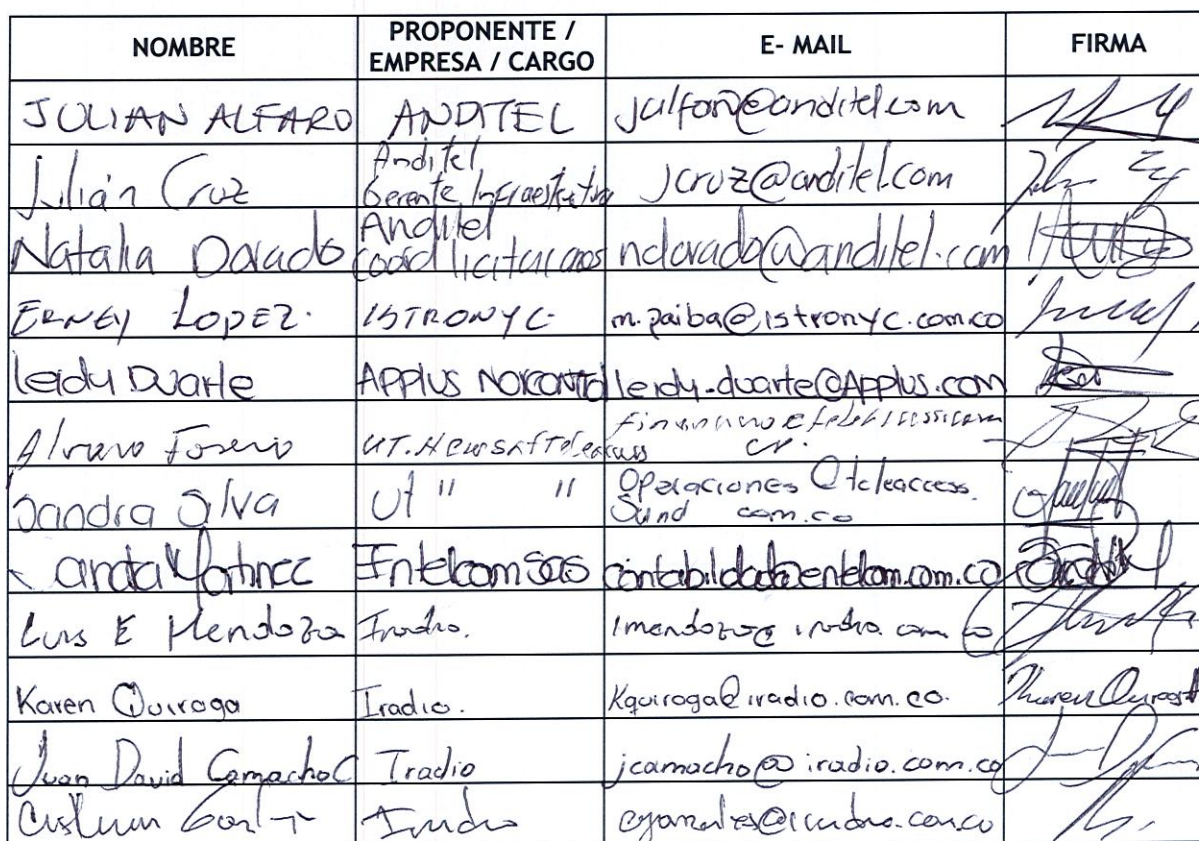 NOMBRE PROPONENTE / EMPRESA / CARGO E- MAIL FIRMA
JULIAN ALFARO ANDITEL jalfaro@anditel.com
Julián Cruz Anditel Gerente Infraestructura jcruz@anditel.com
Natalia Dorado Anditel coord licitaciones ndorado@anditel.com
ERNEY LOPEZ. ISTRONYC m.paiba@istronyc.com.co
leidy Duarte APPlus NORCONTROL leidy.duarte@Applus.com
Alvaro Forero UT. Newsat Teleaccess
Sandra Silva Ut " " Operaciones @teleaccess. com.co
Martinez Intelcom SAS contabilidad@entelcom.com.co
Luis E Mendoza Iradio. lmendoza@iradio.com.co
Karen Quiroga Iradio. Kquiroga@iradio.com.co. Karen Quiroga
Juan David Camacho C Iradio jcamacho@iradio.com.co
Iradio